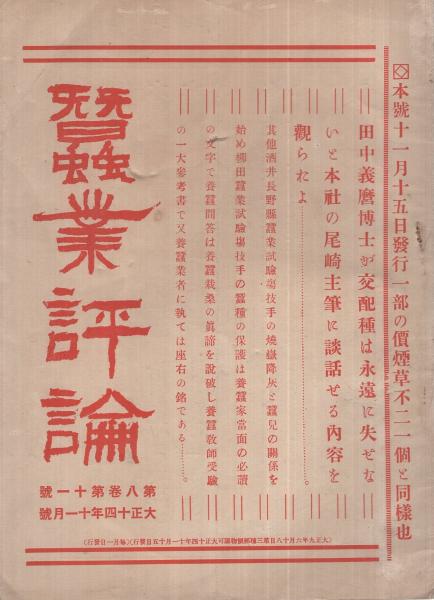 ◇本號十一月十五日發行一部の價煙草不二一個と同樣也
田中義麿博士が交配種は永遠に失せな
いと本社の尾崎主筆に談話せる内容を
觀られよ
其他酒井長野縣蠶業試驗塲技手の燒嶽降灰と蠶兒の關係を
始め柳田蠶業試驗塲技手の蠶種の保護は養蠶家當面の必讀
の文字で養蠶問答は養蠶栽桑の眞諦を說破し養蠶敎師受驗
の一大參考書で又養蠶業者に執ては座右の銘である……。
蠶業評論
第八卷第十一號
大正十四年十一月號
(大正九年六月十八日第三種郵便物認可大正十四年十一月十五日發行)(每月一日發行)